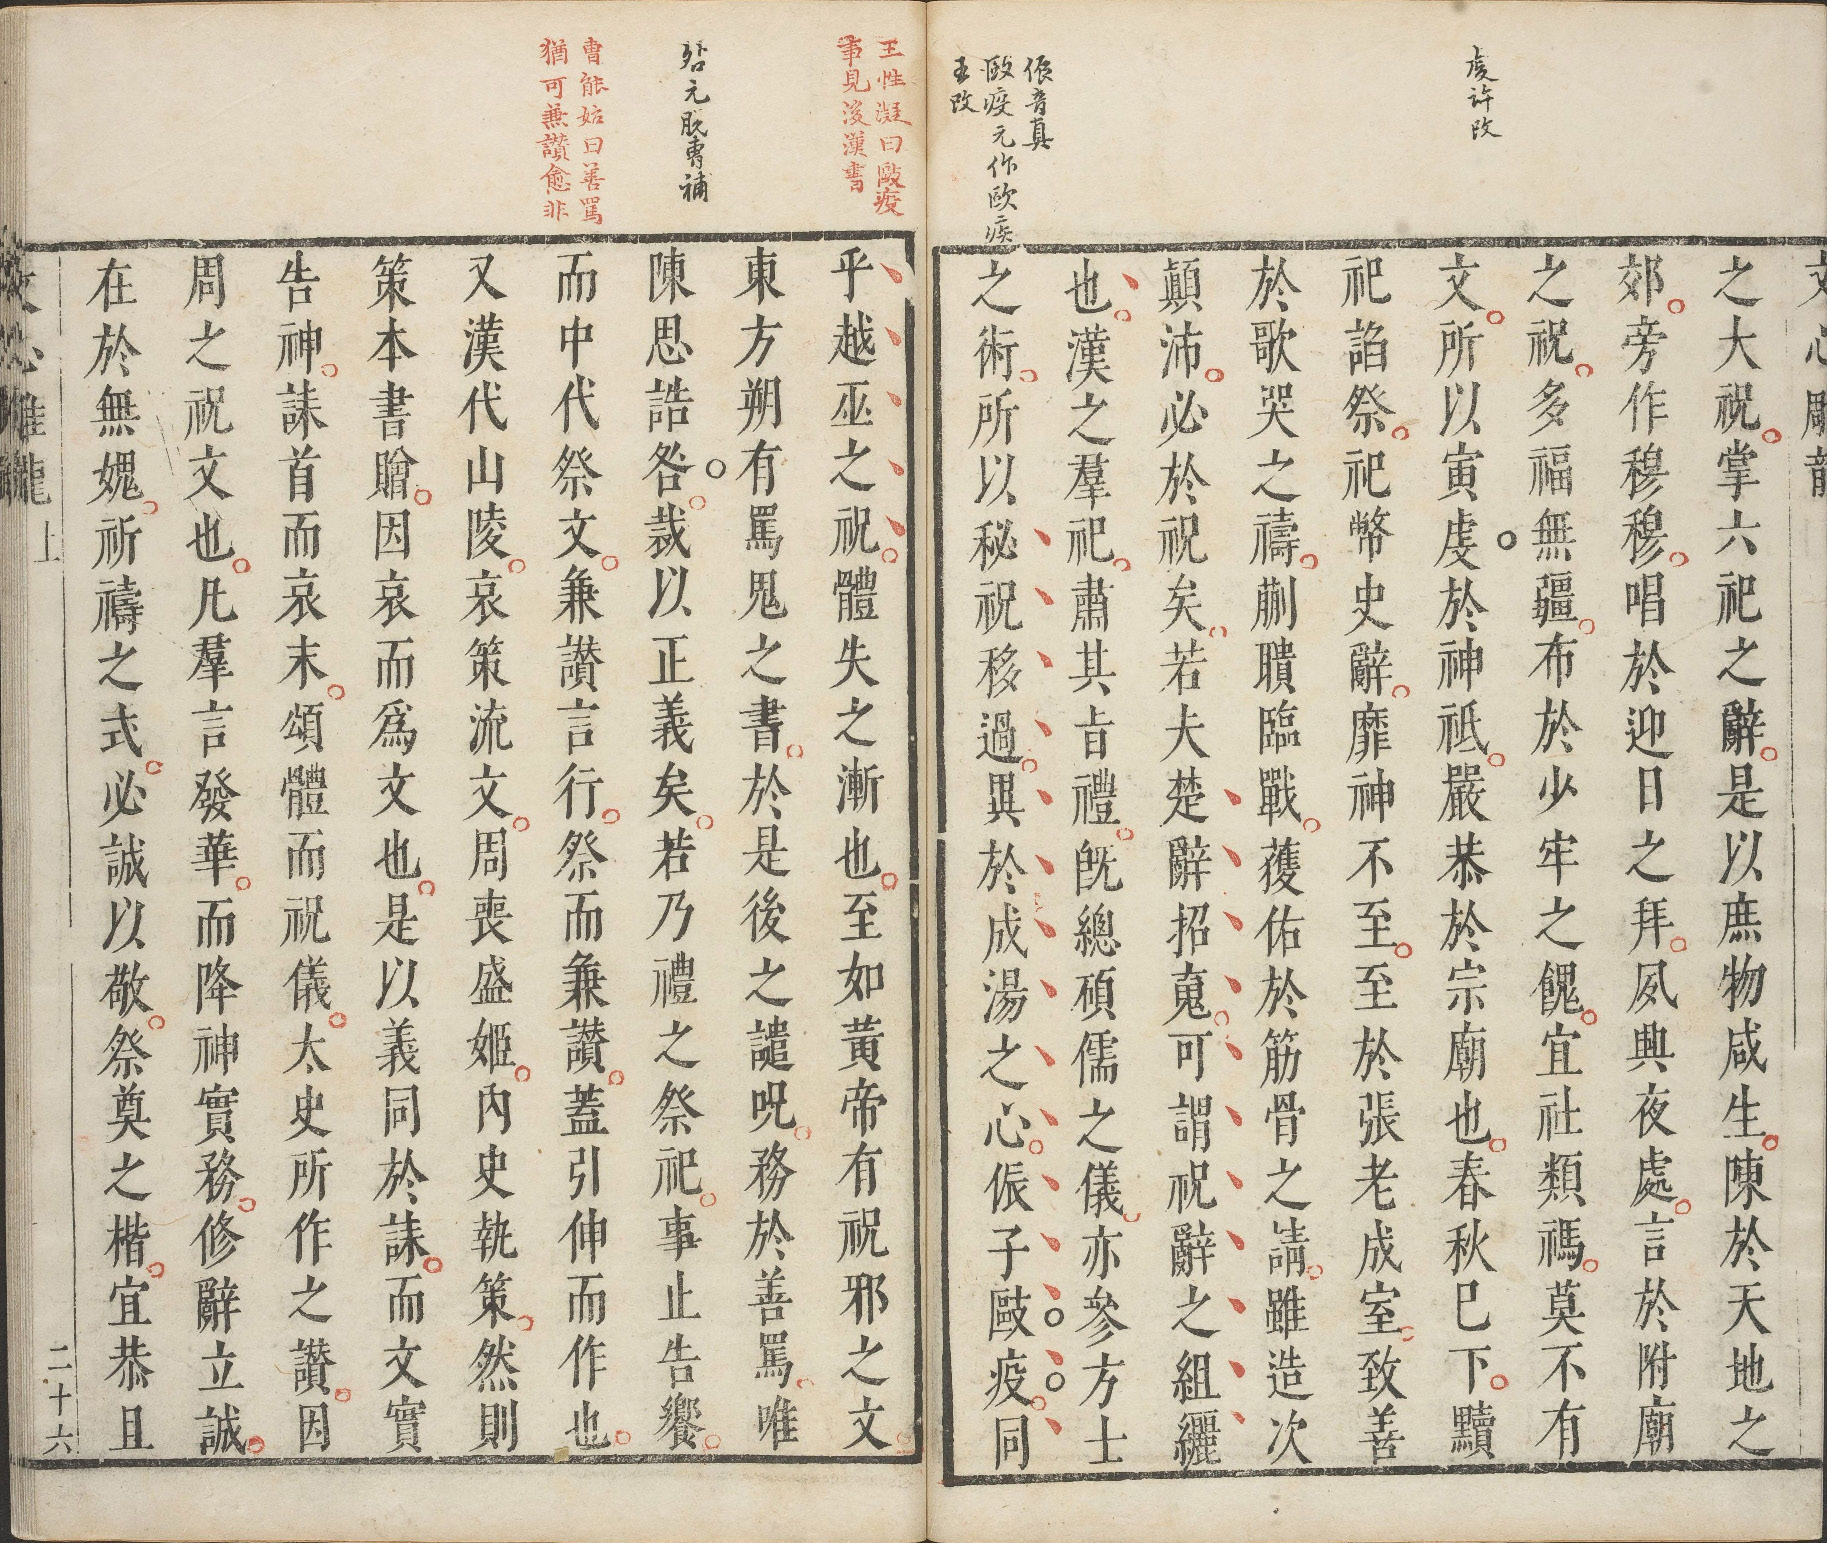 虔許改
侲音真
毆疫元作歐疾
王改
文心雕龍
之大祝掌六祀之辭是以庶物咸生陳於天地之
郊旁作穆穆唱於迎日之拜夙興夜處言於附廟
之祝多福無疆布於少牢之饋宜社類禡莫不有
文所以寅虔於神祇嚴恭於宗廟也春秋已下黷
祀諂祭祀幣史辭靡神不至至於張老成室致善
於歌哭之禱蒯聵臨戰獲佑於筋骨之請雖造次
顛沛必於祝矣若夫楚辭招䰟可謂祝辭之組纚
也漢之羣祀肅其旨禮旣總碩儒之儀亦參方士
之術所以秘祝移過異於成湯之心侲子毆疫同
王性凝曰毆疫
事見後漢書
咎元脫曹補
曹能始曰善罵
猶可兼讚愈非
乎越巫之祝體失之漸也至如黃帝有祝邪之文
東方朔有罵鬼之書於是後之譴呪務於善罵唯
陳思誥咎裁以正義矣若乃禮之祭祀事止告饗
而中代祭文兼讃言行祭而兼讃蓋引伸而作也
又漢代山陵哀策流文周喪盛姬內史執策然則
策本書贈因哀而爲文也是以義同於誄而文實
告神誄首而哀末頌體而祝儀太史所作之讃因
周之祝文也凡羣言發華而降神實務修辭立誠
在於無媿祈禱之式必誠以敬祭奠之楷宜恭且
文心雕龍 上 二十六